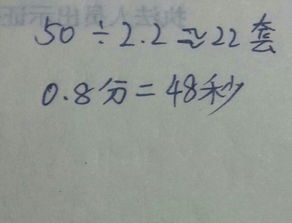 50÷2.2≈22套
0.8分=48秒